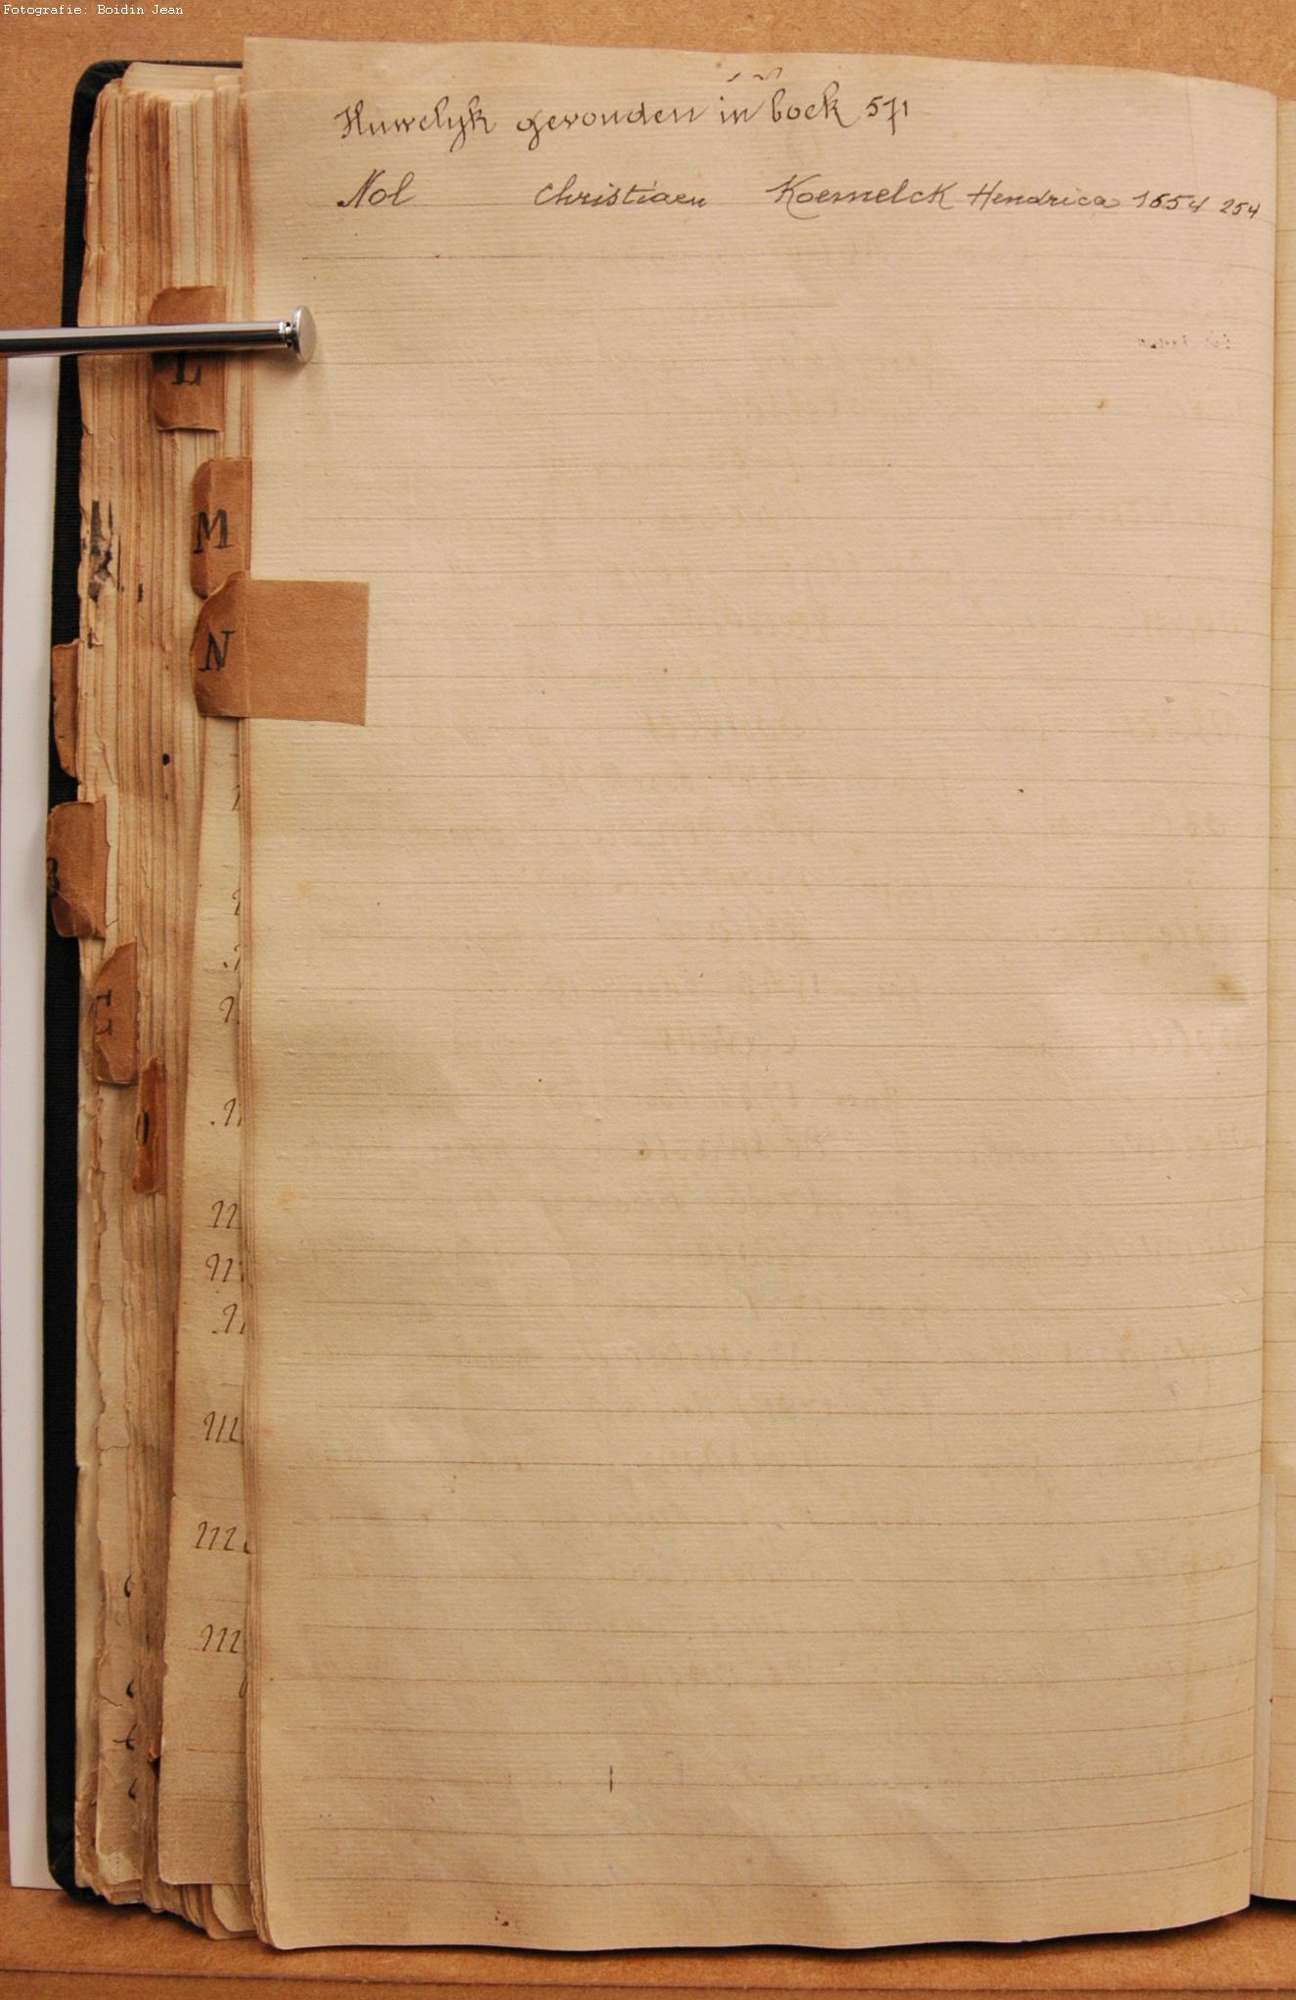 Fotografie: Boidin Jean
Huwelyk gevonden in boek 571
Nol Christiaen Koemelck Hendrica 1654 254
L
M
N
B
C